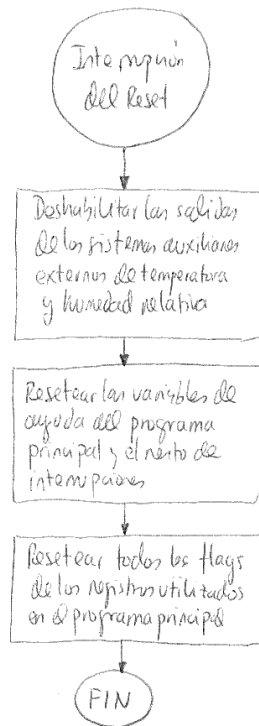 Interrupción
del Reset
Deshabilitar las salidas
de los sistemas auxiliares
externos de temperatura
y humedad relativa
Resetear las variables de
ayuda del programa
principal y el resto de
interrupciones
Resetear todos los flags
de los registros utilizados
en el programa principal
FIN